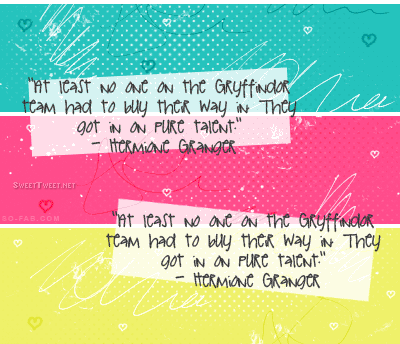 "At least no one on the Gryffindor
team had to buy their way in They
got in on pure talent."
- Hermione Granger
SweetTweet.net
SO-FAB.COM
"At least no one on the Gryffindor
team had to buy their way in They
got in on pure talent."
- Hermione Granger